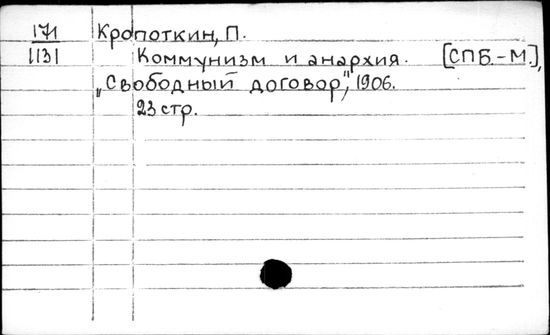 171 Кропоткин, П.
1131 Коммунизм и анархия. [СПБ.-М.],
„Свободный договор", 1906.
23 стр.